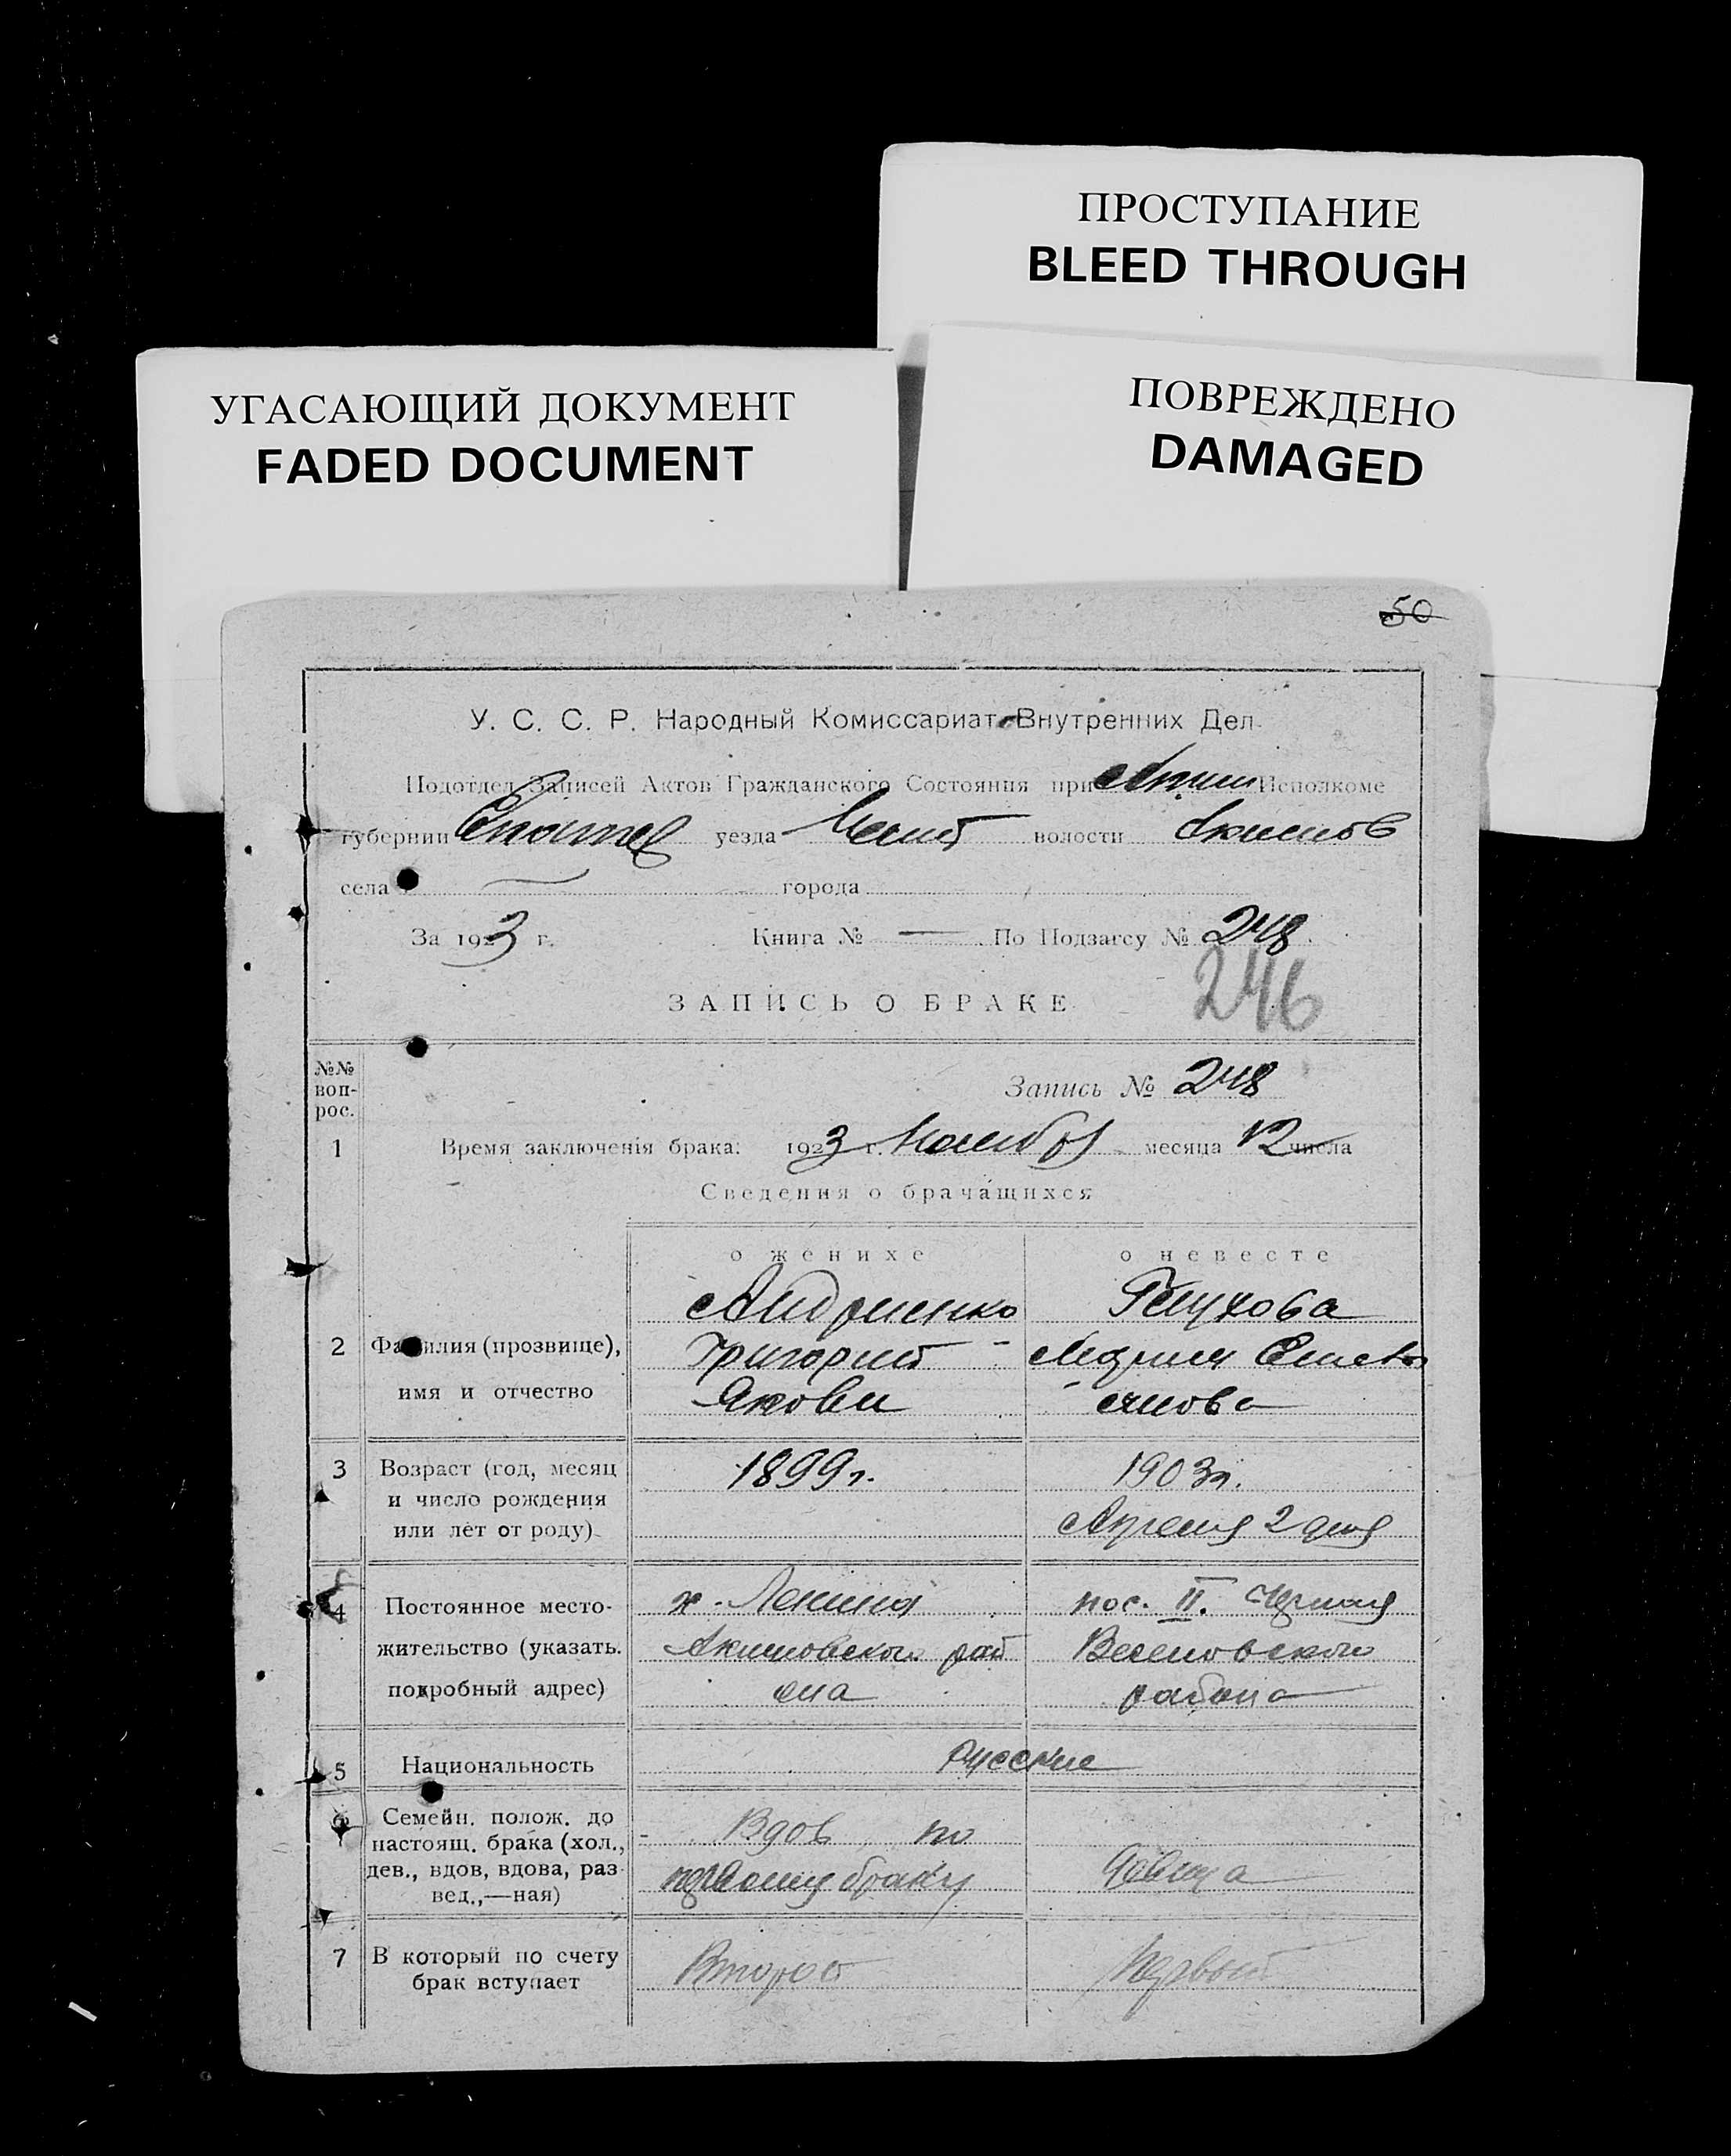 ПРОСТУПАНИЕ
BLEED THROUGH
УГАСАЮЩИЙ ДОКУМЕНТ
FADED DOCUMENT
ПОВРЕЖДЕНО
DAMAGED
50
У. С. С. Р. Народный Комиссариат Внутренних Дел
Подотдел Записей Актов Гражданского Состояния при Исполкоме
губернии уезда волости Акимов
села города
За 1923 г. Книга № — По Подзагсу № 248
246
ЗАПИСЬ О БРАКЕ
№№ воп-рос.
Запись № 248
1 Время заключенія брака: 1923 г. Ноября месяца 12 числа
Сведения о брачащихся
о женихе о невесте
Андриенко Глухова
2 Фамилия (прозвище), Григорий Мария
имя и отчество Якови
3 Возраст (год, месяц 1899 г. 1903 г.
и число рождения
или лет от роду) Апреля 2 дня
4 Постоянное место- х. Ленина пос. II.
жительство (указать. Акимовского рай Веселовского
подробный адрес) она района
5 Национальность русские
6 Семейн. полож. до
настоящ. брака (хол., Вдов по
дев., вдов, вдова, раз первому браку девица
вед.,—ная)
7 В который по счету Второй Первый
брак вступает